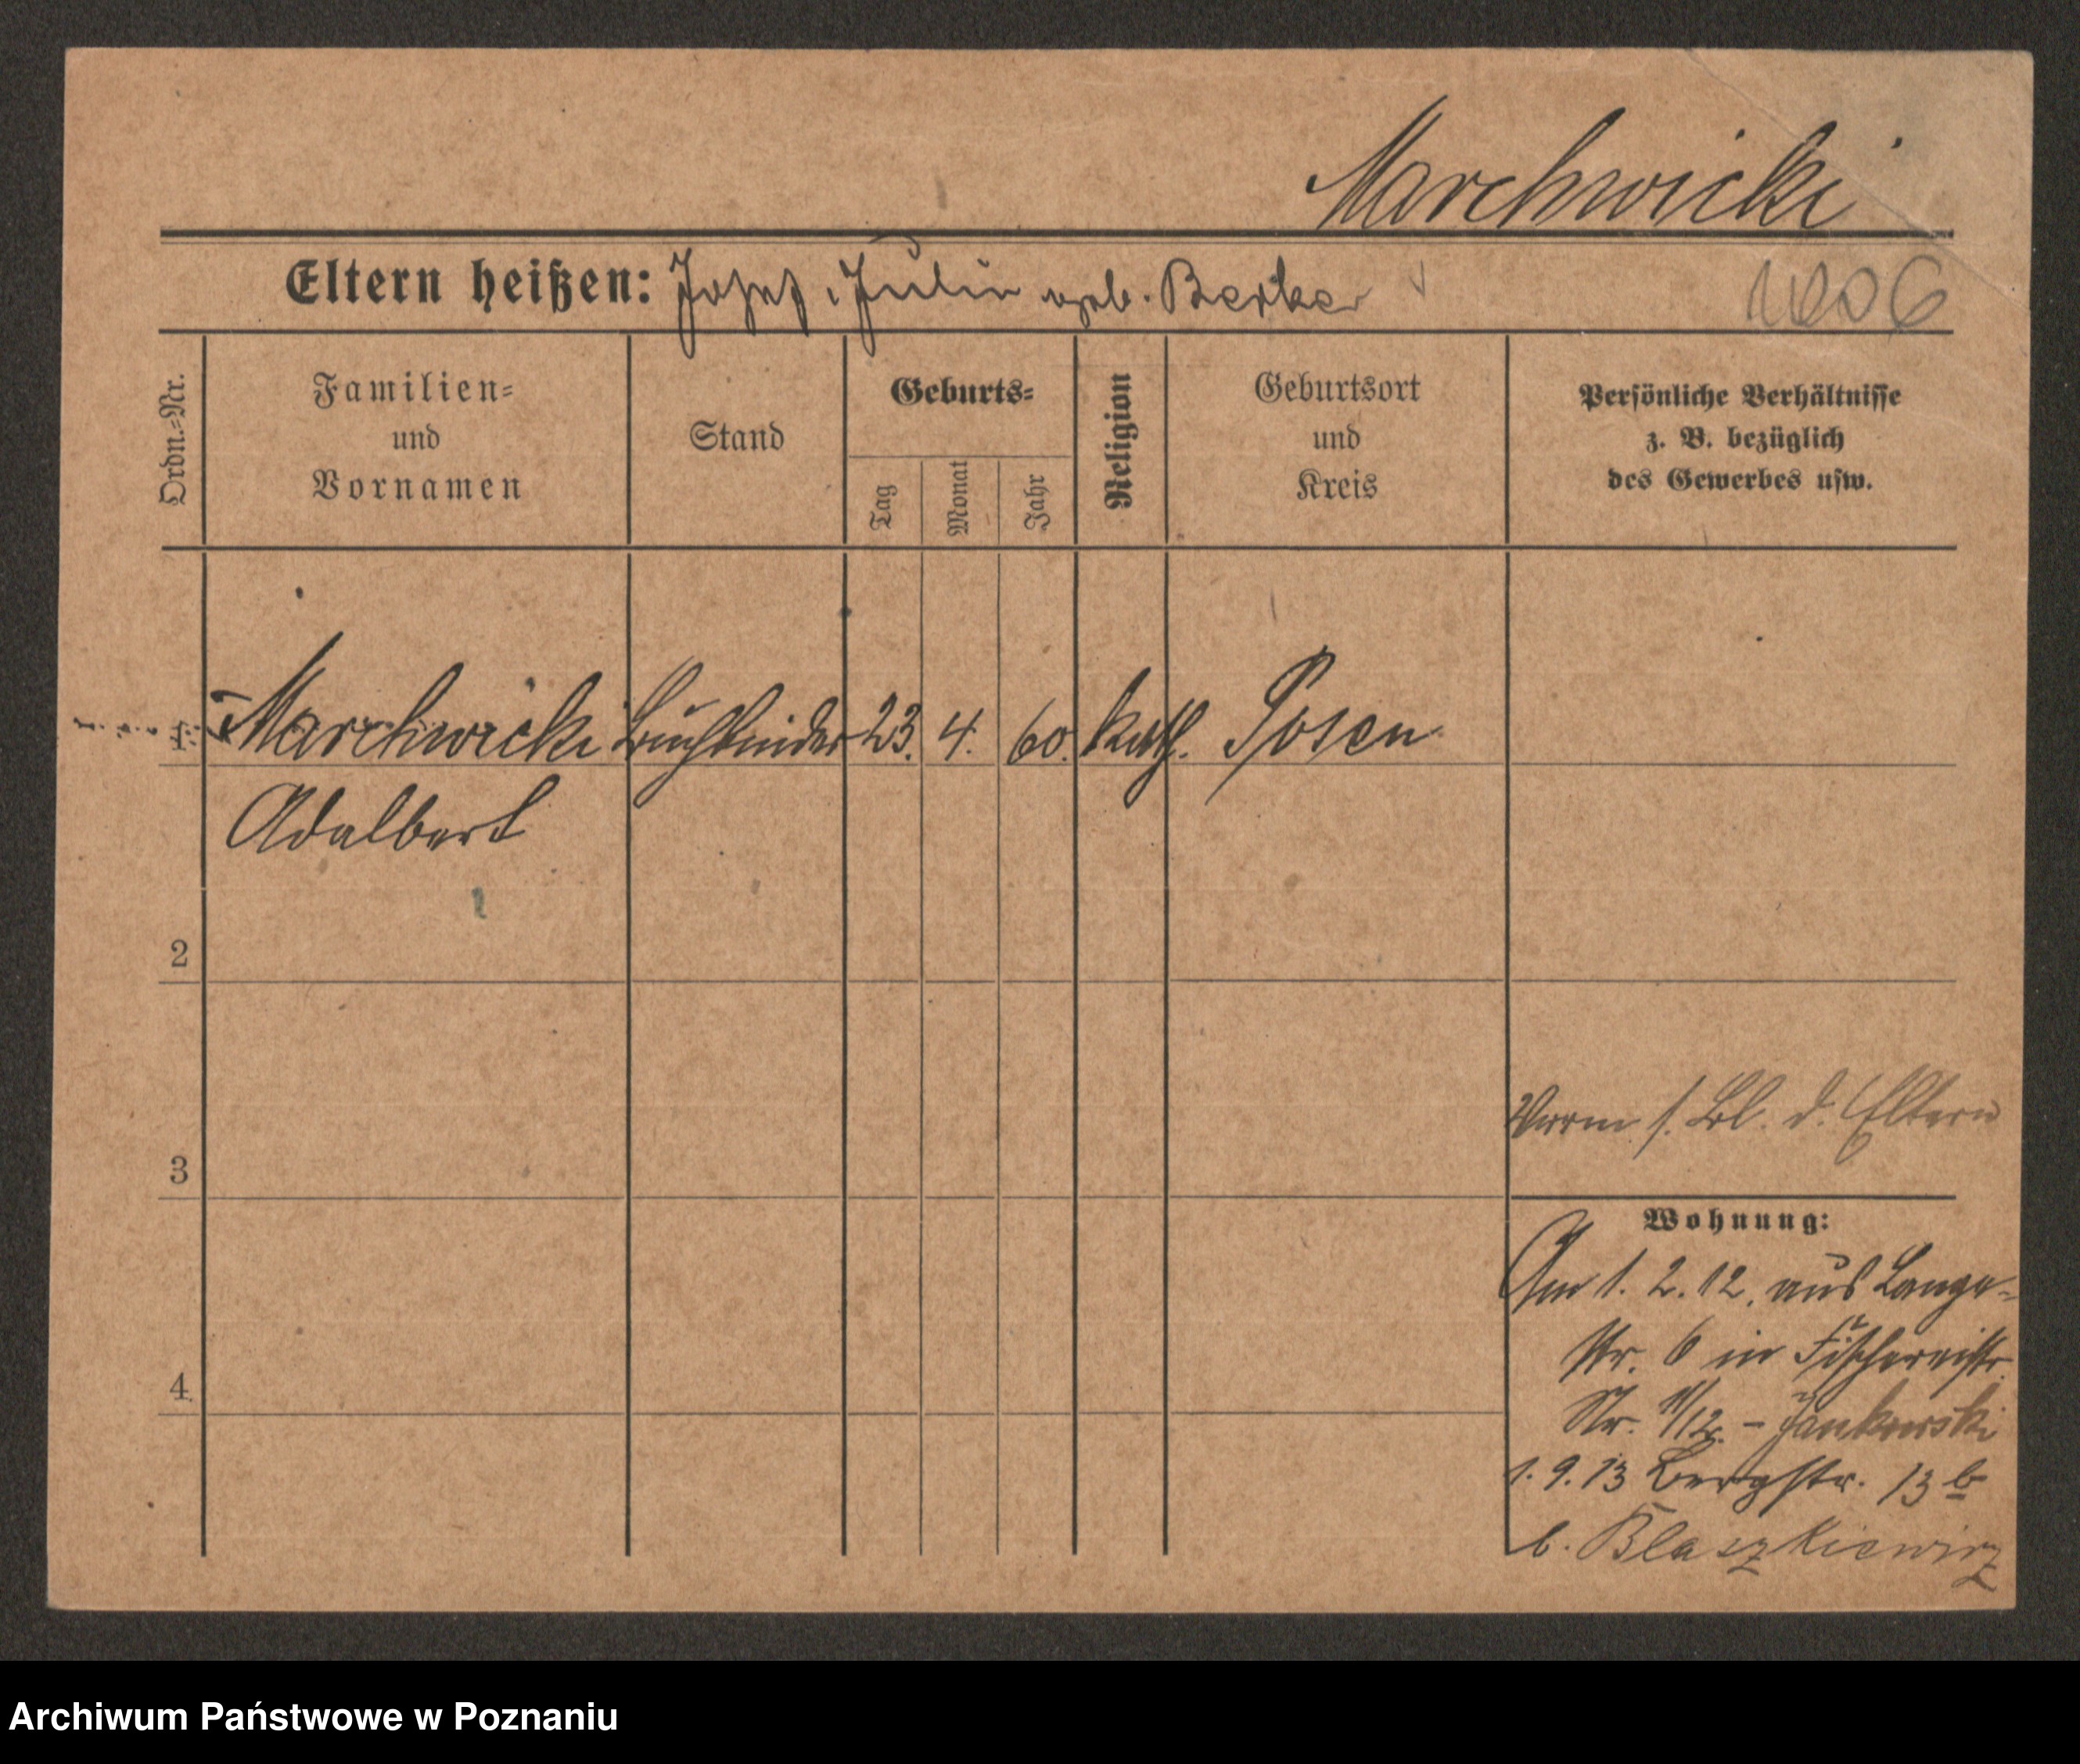 Marchwicki
Eltern heißen: Josef, Julia geb. Berker
1006
Ordn.=Nr.
Familien=
und
Vornamen
Stand
Geburts=
Tag
Monat
Jahr
Religion
Geburtsort
und
Kreis
Persönliche Verhältnisse
z. B. bezüglich
des Gewerbes usw.
1 Marchwicki Buchbinder 23. 4. 60. kath. Posen
Adalbert
2
3
4
Vorm s. Bl. d. Eltern
Wohnung:
Am 1. 2. 12. aus Lange-
Str. 6 in Fischereistr.
Nr. 11/12. – Jankowski
1. 9. 13 Bergstr. 13 b
b. Blaszkiewicz
Archiwum Państwowe w Poznaniu